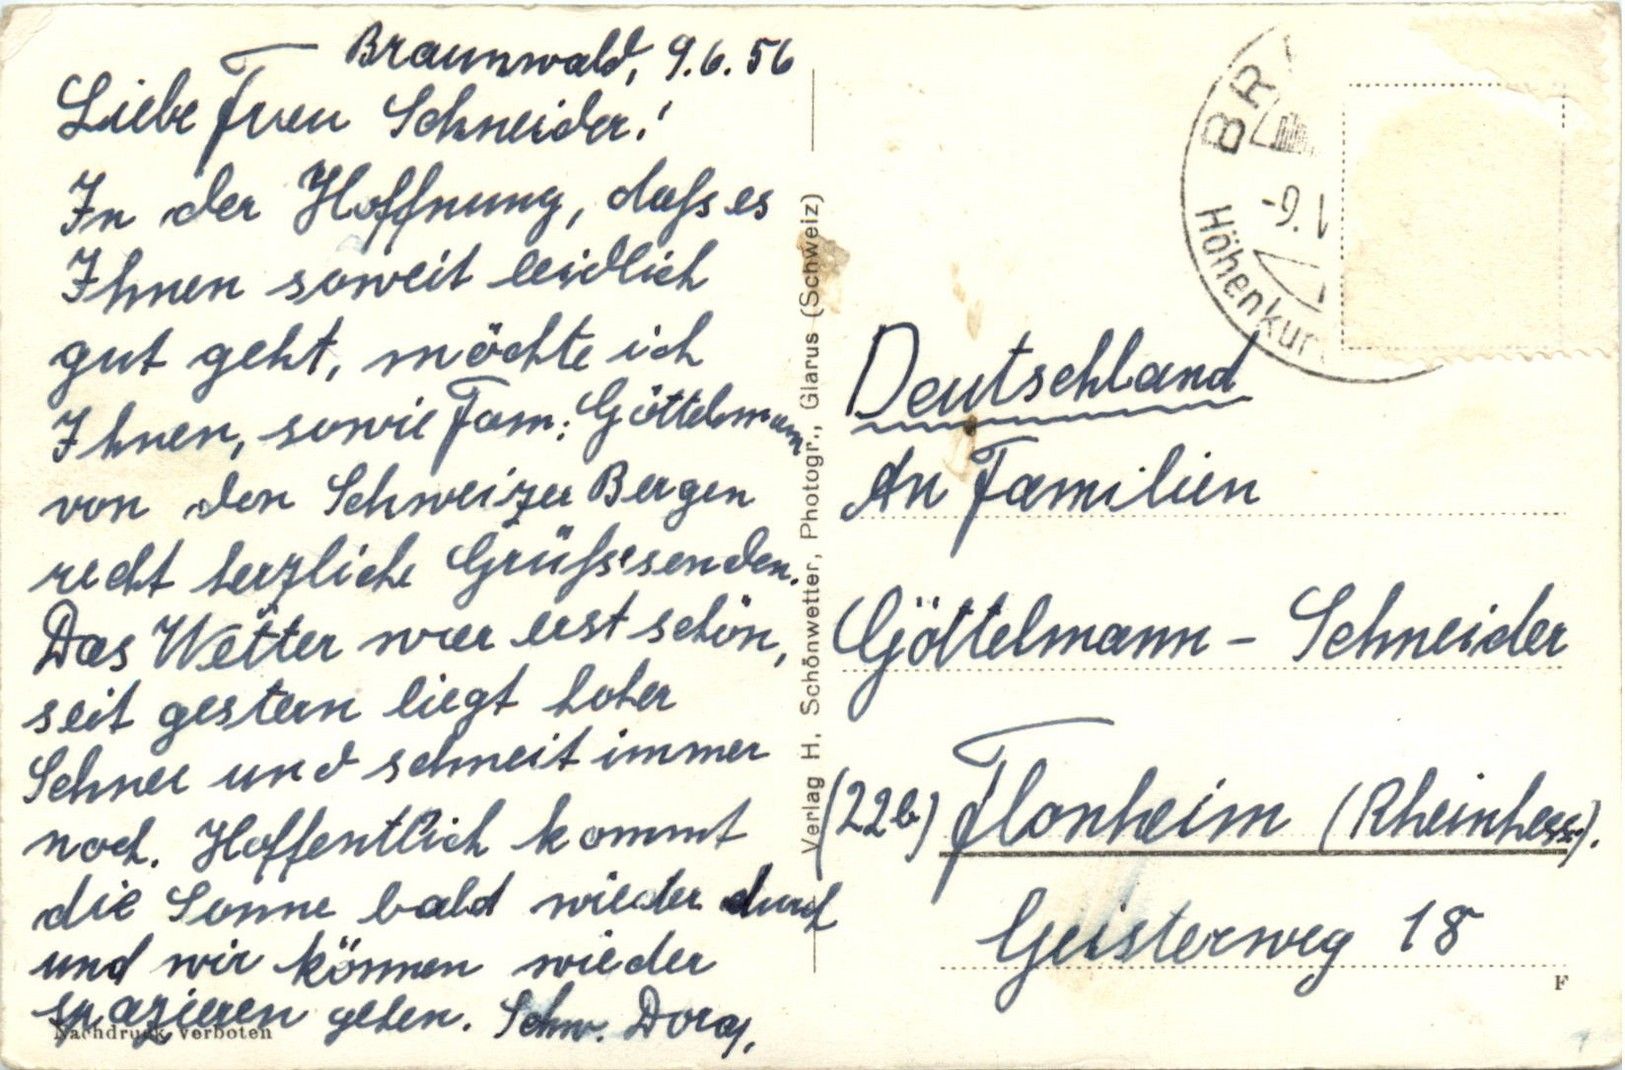 Braunwald, 9.6.56
Liebe Frau Schneider!
In der Hoffnung, dafs es
Ihnen soweit leidlich
gut geht, möchte ich
Ihnen, sowie Fam: Göttelmann
von den Schweizer Bergen
recht herzliche Grüfse senden.
Das Wetter war erst schön,
seit gestern liegt hoher
Schnee und schneit immer
noch. Hoffentlich kommt
die Sonne bald wieder durch
und wir können wieder
spazieren gehen. Schw. Dora,
Nachdruck verboten
Verlag H. Schönwetter, Photogr., Glarus (Schweiz)
BRA
-9. V
Höhenkur
Deutschland
An Familien
Göttelmann - Schneider
(22b) Flonheim (Rheinhess.).
Geisterweg 18
F